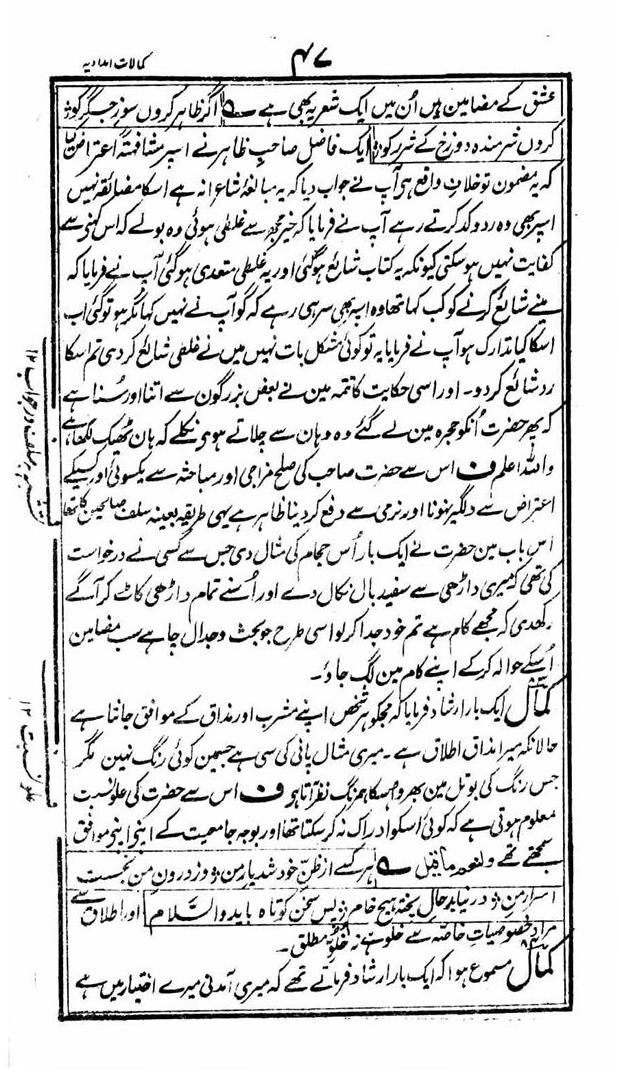 ۴۷
کمالات امدادیہ
عشق کے مضامین ہیں اُن میں ایک شعر یہ بھی ہے ؎ اگر ظاہر کروں سوز جگر کو :
کروں شرمندہ دوزخ کے شرر کو : ایک فاضل صاحبِ ظاہر نے اسپر مشافہۃً اعتراض کیا
کہ یہ مضمون تو خلافِ واقع ہی آپ نے جواب دیا کہ یہ مبالغہ شاعرانہ ہے اسکا مضائقہ نہیں
اسپر بھی وہ ردوکد کرتے رہے آپ نے فرمایا کہ خیر مجھ سے غلطی ہوئی وہ بولے کہ اس کہنے سے
کفایت نہیں ہو سکتی کیونکہ یہ کتاب شائع ہو گئی اور یہ غلطی متعدی ہو گئی آپ نے فرمایا کہ
مینے شائع کرنے کو کب کہا تھا وہ اسپر بھی سر ہی رہے کہ گو آپ نے نہیں کہا مگر ہو تو گئی اب
اسکا کیا تدارک ہو آپ نے فرمایا یہ تو کوئی مشکل بات نہیں میں نے غلطی شائع کر دی تم اسکا
رد شائع کر دو ۔ اور اسی حکایت کا تتمہ مین نے بعض بزرگون سے اتنا اور سُنا ہے
کہ پھر حضرت اُنکو حجرہ مین لے گئے وہ وہان سے چلاتے ہوی نکلے کہ ہان ٹھیک لکھا ہے
واللہ اعلم ف اس سے حضرت صاحب کی صلح مزاجی اور مباحثہ سے یکسوئی اور کسیکے
اعتراض سے دلگیر نہونا اور نرمی سے دفع کر دینا ظاہر ہے یہی طریقہ بعینہ سلف صالحین کا تھا
اس باب مین حضرت نے ایک بار اُس حجام کی مثال دی جس سے کسی نے درخواست
کی تھی کہ میری داڑھی سے سفید بال نکال دے اور اُسنے تمام داڑھی کاٹ کر آگے
رکھدی کہ مجھے کام ہے تم خود جدا کر لو اسی طرح جو بحث و جدال چاہے سب مضامین
اُسکے حوالہ کر کے اپنے کام مین لگ جاؤ ۔
کمال ایک بار ارشاد فرمایا کہ مجکو ہر شخص اپنے مشرب اور مذاق کے موافق جانتا ہے
حالانکہ میرا مذاق اطلاق ہے ۔ میری مثال پانی کی سی ہے جسمین کوئی رنگ نہین مگر
جس رنگ کی بوتل مین بھر دو اسکا ہمرنگ نظر آتا ہو ف اس سے حضرت کی علو نسبت
معلوم ہوتی ہے کہ کوئی اسکو ادراک نہ کر سکتا تھا اور بوجہ جامعیت کے اپنی اپنی موافق
سمجھتے تھے ولنعم ما قیل ؎ ہر کسے از ظن خود شد یار من : وز درون من نجست
اسرار من : در نیابد حال پختہ ہیچ خام : پس سخن کوتاہ باید والسلام اور اطلاق سے
مراد خصوصیات خاصہ سے خلو ہے نہ خلو مطلق ۔
کمال مسموع ہوا کہ ایک بار ارشاد فرماتے تھے کہ میری آمدنی میرے اختیار میں ہے
علو نسبت ۱۲